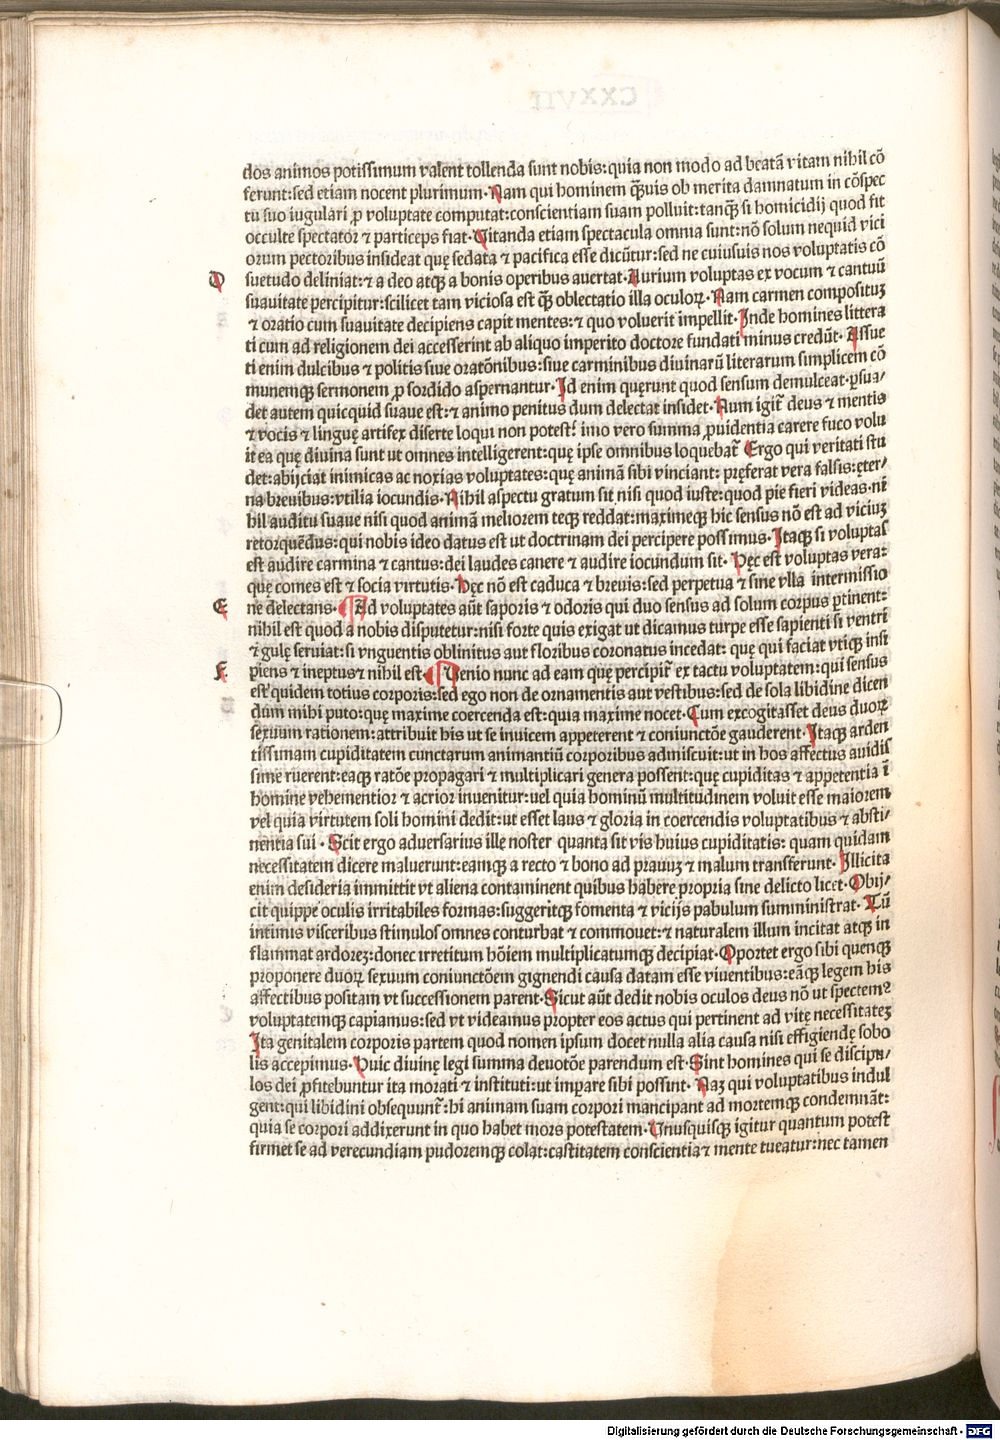 dos animos potissimum valent tollenda sunt nobis:quia non modo ad beatā vitam nihil cō
ferunt:sed etiam nocent plurimum·Nam qui hominem q̄̄uis ob merita damnatum in cōspec
tu suo iugulari ꝓ voluptate computat:conscientiam suam polluit:tanq̄̄ si homicidij quod fit
occulte spectator ⁊ particeps fiat·Vitanda etiam spectacula omnia sunt:nō solum nequid vici
orum pectoribus insideat quę sedata ⁊ pacifica esse dicūtur:sed ne cuiusuis nos voluptatis cō
D suetudo deliniat:⁊ a deo atqꝫ a bonis operibus auertat·Aurium voluptas ex vocum ⁊ cantuū
suauitate percipitur:scilicet tam viciosa est q̄̄ oblectatio illa oculoꝝ·Nam carmen composituꝫ
⁊ oratio cum suauitate decipiens capit mentes:⁊ quo voluerit impellit·Inde homines littera
ti cum ad religionem dei accesserint ab aliquo imperito doctore fundati minus credūt·Assue
ti enim dulcibus ⁊ politis siue oratōnibus:siue carminibus diuinarū literarum simplicem cō
munemqꝫ sermonem ꝓ sordido aspernantur·Id enim quęrunt quod sensum demulceat·ꝑsua/
det autem quicquid suaue est:⁊ animo penitus dum delectat insidet·Num igit̄ deus ⁊ mentis
⁊ vocis ⁊ linguę artifex diserte loqui non potest? imo vero summa ꝓuidentia carere fuco volu
it ea quę diuina sunt ut omnes intelligerent:quę ipse omnibus loquebat̄ Ergo qui veritati stu
det:abijciat inimicas ac noxias voluptates:quę animā sibi vinciant: pręferat vera falsis:ęter/
na breuibus:vtilia iocundis·Nihil aspectu gratum sit nisi quod iuste:quod pie fieri videas·ni
hil auditu suaue nisi quod animā meliorem teqꝫ reddat:maximeqꝫ hic sensus nō est ad viciuꝫ
retorquēdus:qui nobis ideo datus est ut doctrinam dei percipere possimus·Itaqꝫ si voluptas
est audire carmina ⁊ cantus:dei laudes canere ⁊ audire iocundum sit· Hęc est voluptas vera:
quę comes est ⁊ socia virtutis·Hęc nō est caduca ⁊ breuis:sed perpetua ⁊ sine vlla intermissio
E ne delectans· Ad voluptates aūt saporis ⁊ odoris qui duo sensus ad solum corpus ꝑtinent:
nihil est quod a nobis disputetur:nisi forte quis exigat ut dicamus turpe esse sapienti si ventri
⁊ gulę seruiat:si vnguentis oblinitus aut floribus coronatus incedat: quę qui faciat vtiqꝫ insi
F piens ⁊ ineptus⁊ nihil est Venio nunc ad eam quę percipit̄ ex tactu voluptatem:qui sensus
est quidem totius corporis:sed ego non de ornamentis aut vestibus:sed de sola libidine dicen
dum mihi puto:quę maxime coercenda est:quia maxime nocet·Cum excogitasset deus duoꝝ
sexuum rationem:attribuit his ut se inuicem appeterent ⁊ coniunctōe gauderent·Itaqꝫ arden
tissimam cupiditatem cunctarum animantiū corporibus admiscuit:ut in hos affectus auidis
sime ruerent:eaqꝫ ratōe propagari ⁊ multiplicari genera possent:quę cupiditas ⁊ appetentia ī
homine vehementior ⁊ acrior inuenitur:uel quia hominū multitudinem voluit esse maiorem
vel quia virtutem soli homini dedit:ut esset laus ⁊ gloria in coercendis voluptatibus ⁊ absti/
nentia sui·Scit ergo aduersarius ille noster quanta sit vis huius cupiditatis: quam quidam
necessitatem dicere maluerunt:eamqꝫ a recto ⁊ bono ad prauuꝫ ⁊ malum transferunt·Illicita
enim desideria immittit vt aliena contaminent quibus habere propria sine delicto licet·Obij/
cit quippe oculis irritabiles formas:suggeritqꝫ fomenta ⁊ vicijs pabulum sumministrat·Tū
intimis visceribus stimulos omnes conturbat ⁊ commouet:⁊ naturalem illum incitat atqꝫ in
flammat ardoreꝫ:donec irretitum hōiem multiplicatumqꝫ decipiat·Oportet ergo sibi quenqꝫ
proponere duoꝝ sexuum coniunctōem gignendi causa datam esse viuentibus:eāqꝫ legem his
affectibus positam vt successionem parent·Sicut aūt dedit nobis oculos deus nō ut spectem⁹
voluptatemqꝫ capiamus:sed vt videamus propter eos actus qui pertinent ad vitę necessitateꝫ
Ita genitalem corporis partem quod nomen ipsum docet nulla alia causa nisi effigiendę sobo
lis accepimus·Huic diuinę legi summa deuotōe parendum est·Sint homines qui se discipu/
los dei ꝓfitebuntur ita morati ⁊ instituti:ut imꝑare sibi possint· Naꝫ qui voluptatibus indul
gent:qui libidini obsequunt̄:hi animam suam corpori mancipant ad mortemqꝫ condemnāt:
quia se corpori addixerunt in quo habet mors potestatem·Vnusquisqꝫ igitur quantum potest
firmet se ad verecundiam pudoremqꝫ colat:castitatem conscientia⁊ mente tueatur:nec tamen
Digitalisierung gefördert durch die Deutsche Forschungsgemeinschaft - DFG